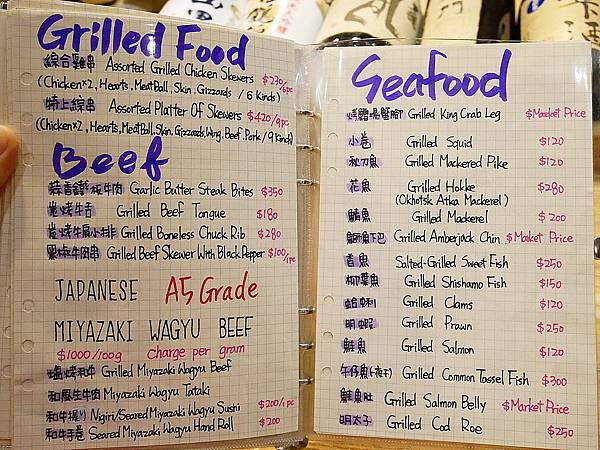 Grilled Food
綜合雞串 Assorted Grilled Chicken Skewers $230/6pc
(Chicken×2, Hearts, MeatBall, Skin, Gizzards / 6 Kinds)
特上綜串 Assorted Platter Of Skewers $420/9pc
(Chicken×2, Hearts, MeatBall, Skin, Gizzards, Wing, Beef, Pork / 9 Kinds)
Beef
蒜香鐵板牛肉 Garlic Butter Steak Bites $350
炭烤牛舌 Grilled Beef Tongue $180
炭烤牛肩小排 Grilled Boneless Chuck Rib $280
黑椒牛肉串 Grilled Beef Skewer With Black Pepper $100/1pc
JAPANESE A5 Grade
MIYAZAKI WAGYU BEEF
$1000/100g charge per gram
塩烤和牛 Grilled Miyazaki Wagyu Beef
和風生牛肉 Miyazaki Wagyu Tataki
和牛握り Nigiri/Seared Miyazaki Wagyu Sushi $200/1pc
和牛手卷 Seared Miyazaki Wagyu Hand Roll $200
Seafood
烤鱈場蟹腳 Grilled King Crab Leg $Market Price
小卷 Grilled Squid $120
秋刀魚 Grilled Mackered Pike $120
花魚 Grilled Hokke $280
(Okhotsk Atka Mackerel)
鯖魚 Grilled Mackerel $200
鰤魚下巴 Grilled Amberjack Chin $Market Price
香魚 Salted-Grilled Sweet Fish $250
柳葉魚 Grilled Shishamo Fish $150
蛤蜊 Grilled Clams $120
明蝦 Grilled Prawn $250
鮭魚 Grilled Salmon $120
午仔魚 Grilled Common Tassel Fish $300
鮭魚肚 Grilled Salmon Belly $Market Price
明太子 Grilled Cod Roe $250